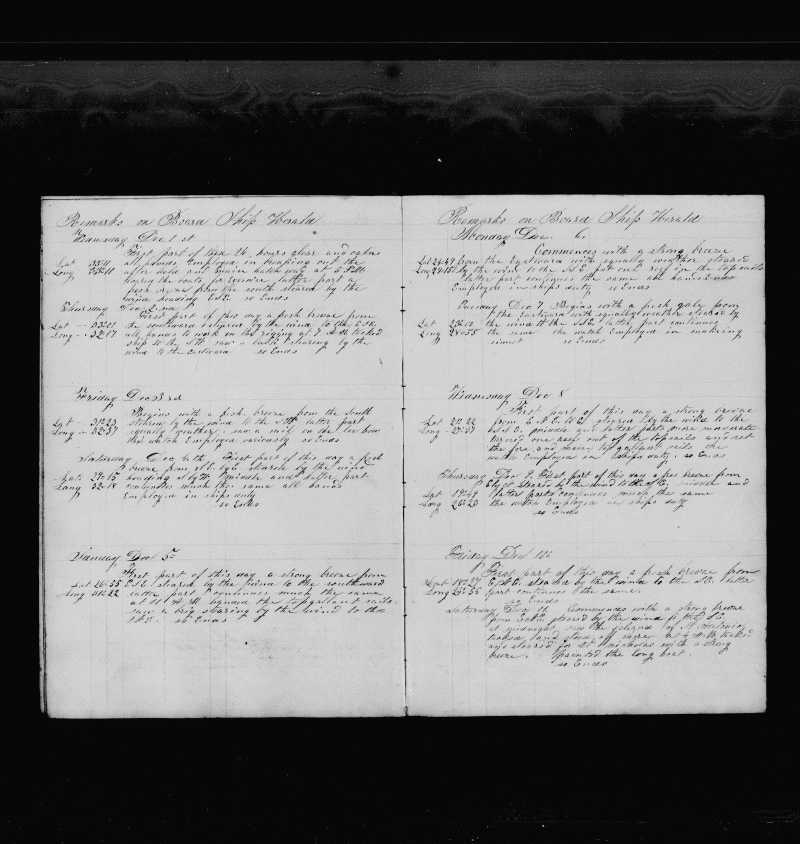 Remarks on Board Ship Herald
Wensday Dec 1st
First part of these 24 hours clear and calm
all hands Employed in breaking out the
after hold and main hatch way at 5 PM
latter part a
fresh breze from the south steared by the
wind heading ESE so Ends
Lat
Long
Thursday Dec 2nd
First part of this day a fresh breeze from
the southward steared by the wind to the ESE
all hands to work on the rigging at 7 AM tacked
ship to the SW saw a bark stearing by the
wind to the Eastward so Ends
Lat
Long 32-17
Friday Dec 3rd
Begins with a fresh breeze from the South
steared by the wind to the SW latter part
squally weather saw a sail on the lee bow
the watch Employed variously so Ends
Lat 31-23
Long 32-37
Saturday Dec 4th First part of this day a fresh
breeze from stearing by the wind
heading S by W middle and latter part
continues much the same all hands
Employed in ships duty
so Ends
Late 29-15
Long 32-18
Sunday Dec 5
First part of this day a strong breeze from
Lat 26-55 ESE steared by the wind to the southward
Long 31-22 latter part continues much the same
at AM the topgalant sails
saw a brig stearing by the wind to the
so Ends
Remarks on Board Ship Herald
Monday Dec. 6
Commences with a strong breeze
from the Eastward with squally weather steared
by the wind to the S.E put one reef in the topsails
latter part continues the same all hands
Employed in ships duty so Ends
Lat 24-49
Long
Tuesday Dec 7 Begins with a fresh gale from
the Eastward with squally weather steared by
the wind to the SSE latter part continues
the same the watch Employed in makeing
sinnet so Ends
Lat
Long 28-55
Wensday Dec 8
First part of this day a strong breeze
from E & E by E steared by the wind to the
middle and latter parts more moderate
turned one reef out of the topsails and set
the fore and main topgalant sails the
watch Employed in ships duty. so Ends
Lat 21-22
Long 27-37
Thursday Dec 9 First part of this day a fresh breeze from
E by steared by the wind to the middle and
latter parts continues much the same
the watch Employed in ships duty
so Ends
Lat 19-49
Long 26-23
Friday Dec 10
First part of this day a fresh breeze from
steared by the wind to the S.E. latter
part continues the same.
so Ends
Lat
Long
Saturday Dec 11 Commences with a strong breeze
from East steared by the wind to the S.E
at midnight saw the island of St Antonio
tacked and stood off shore at 4 AM tacked
and steared for St Nicholas with a strong
breeze. painted the long boat.
so Ends